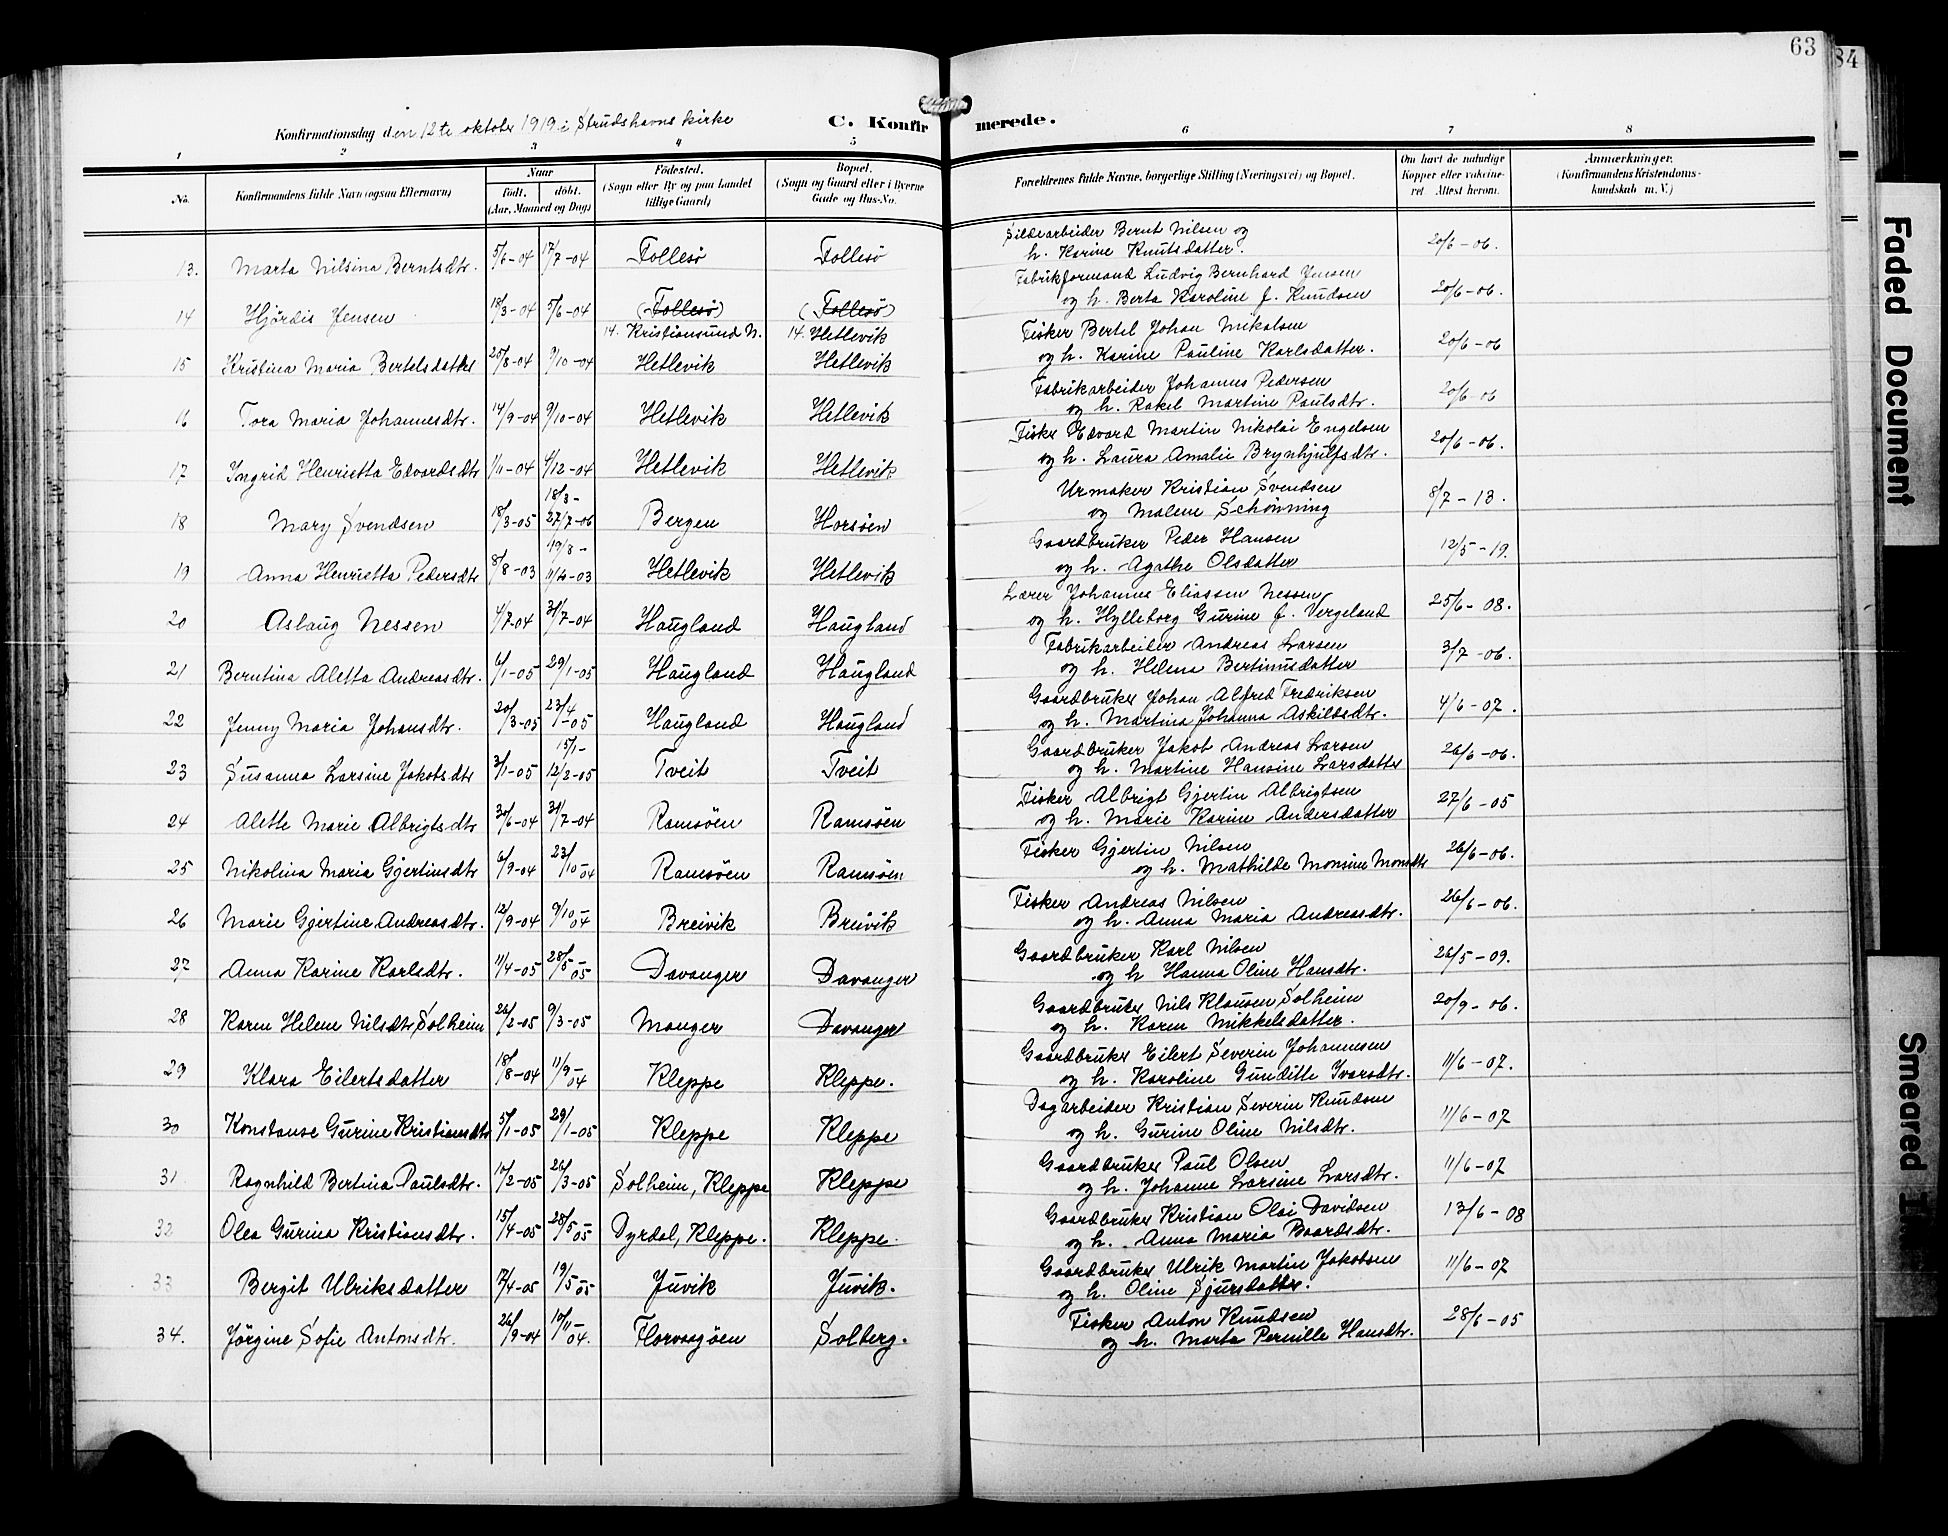 63
84
Konfirmationsdag den 12te oktober 1919 i Strudshavns kirke
C. Konfirmerede.
1 2 3 4 5 6 7 8
No. Konfirmandens fulde Navn (ogsaa Efternavn) Naar født, døbt. (Aar, Maaned og Dag) Fødested. (Sogn eller By og paa Landet tillige Gaard) Bopæl. (Sogn og Gaard eller i Byerne Gade og Hus-No. Forældrenes fulde Navne, borgerlige Stilling (Næringsvei) og Bopæl. Om havt de naturlige Kopper eller vaksineret. Attest herom. Anmærkninger. (Konfirmandens Kristendomskundskab m. V.)
13. Marta Nilsina Berntsdtr. 5/6-04 17/7-04 Follesö Follesö Sildearbeider Bernt Nilsen og h. Karine Knutsdatter. 20/6-06.
14 Hjørdis Jensen 18/3-04 5/6-04 (Follesö) 14. Kristiansund N. (Follesö) 14. Hetlevik Fabrikformand Ludvig Bernhard Jensen og h. Berta Karoline f. Knudsen 20/6-06.
15 Kristina Maria Bertelsdatter 25/8-04 9/10-04 Hetlevik Hetlevik Fisker Bertel Johan Nikolsen og h. Karine Pauline Karlsdatter. 20/6-06
16 Tora Maria Johannesdtr. 14/9-04 9/10-04 Hetlevik Hetlevik Fabrikarbeider Johannes Pedersen og h. Rakel Martine Paulsdtr. 20/6-06
17 Ingrid Henrietta Edvardsdtr 1/11-04 4/12-04 Hetlevik Hetlevik Fisker Edvard Martin Nikolai Engelsen og h. Laura Amalie Brynhjulfsdtr. 20/6-06.
18 Mary Svendsen 18/3-05 18/3- 27/7-06 Bergen Horsöen Urmaker Kristian Svendsen og Malene Schønning 8/7-13.
19 Anna Henrietta Pedersdtr 8/8-03 19/8- 11/10-03 Hetlevik Hetlevik Gaardbruker Peder Hansen og h. Agathe Olsdatter 12/5-19.
20 Aslaug Nessen 4/7-04 31/7-04 Haugland Haugland Lærer Johannes Eliassen Nessen og h. Hylleborg Gurine f. Vergeland 25/6-08.
21 Berntina Aletta Andreasdtr. 6/1-05 29/1-05 Haugland Haugland Fabrikarbeider Andreas Larsen og h. Helena Bertinusdatter 3/7-06.
22 Jenny Maria Johansdtr. 20/3-05 23/4-05 Haugland Haugland Gaardbruker Johan Alfred Fredriksen og h. Martina Johanna Askildsdtr. 4/6-07.
23 Susanna Larsine Jakobsdtr 3/1-05 15/1- 12/2-05 Tveit Tveit Gaardbruker Jakob Andreas Larsen og h. Martine Hansine Larsdatter 26/6-06.
24 Alette Marie Albrigtsdtr 30/6-04 31/7-04 Ramsöen Ramsöen Fisker Albrigt Gjertin Albrigtsen og h. Marie Karine Andersdatter 27/6-05
25 Nikolina Maria Gjertinsdtr 6/9-04 23/10 04 Ramsöen Ramsöen Fisker Gjertin Nilsen og h. Mathilde Monsine Monsdtr 26/6-06.
26 Marie Gjertine Andreasdtr. 12/9-04 9/10-04 Breivik Breivik Fisker Andreas Nilsen og h. Anna Maria Andreasdtr. 26/6-06.
27 Anna Karine Karlsdtr. 11/4-05 28/5-05 Davanger Davanger Gaardbruker Karl Nilsen og h Hanna Oline Hansdtr. 26/5-09.
28 Karen Helene Nilsdtr. Solheim 26/2-05 9/3-05 Manger Davanger Gaardbruker Nils Klausen Solheim og h. Karen Mikkelsdatter. 20/9-06.
29 Klara Eilertsdatter 18/8-04 11/9-04 Kleppe Kleppe. Gaardbruker Eilert Severin Johannesen og h. Karoline Gunditte Ivarsdtr. 11/6-07.
30 Konstanse Gurine Kristiansdtr 5/1-05 29/1-05 Kleppe Kleppe Dagarbeider Kristian Severin Knudsen og h. Gurine Oline Nilsdtr. 11/6-07
31 Ragnhild Bertina Paulsdtr. 10/2-05 26/3-05 Solheim, Kleppe Kleppe Gaardbruker Paul Olsen og h. Johanne Larsine Larsdtr. 11/6-07
32 Olea Gurina Kristiansdtr. 15/4-05 28/5-05 Dyrdal, Kleppe. Kleppe. Gaardbruker Kristian Olai Davidsen og h. Anna Maria Baardsdtr. 13/6-08
33 Bergit Ulriksdatter 7/4-05 19/5-05 Juvik Juvik. Gaardbruker Ulrik Martin Jakobsen og h. Oline Sjursdatter. 11/6-07
34. Jörgine Sofie Antonsdtr. 26/9-04 10/11-04. Florvaagöen Solberg. Fisker Anton Knudsen og h. Marta Pernille Hansdtr. 28/6-05
Faded Document
Smeared